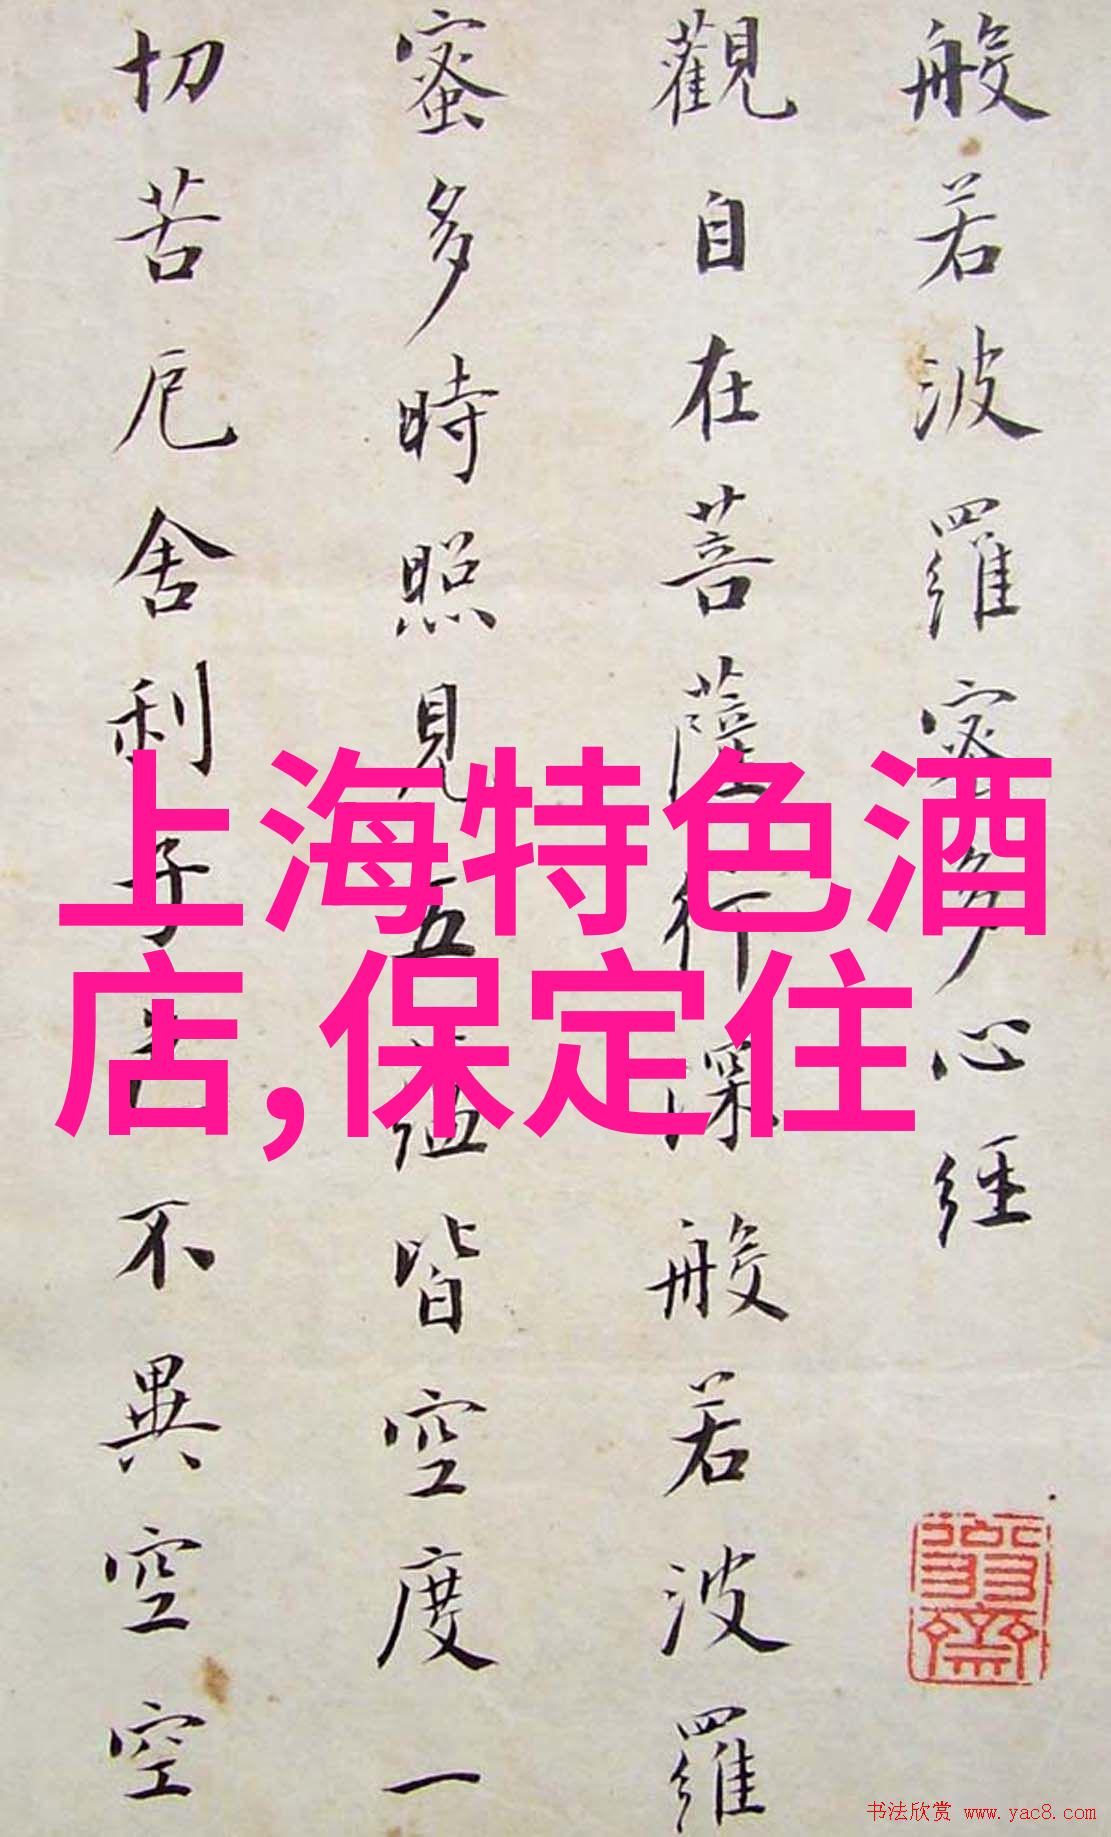 般若波羅蜜多心經
觀自在菩薩行深般若波羅
蜜多時照見五蘊皆空度一
切苦厄舍利子色不異空空
上海特色酒
店,保定住
书法欣赏 www.yac8.com